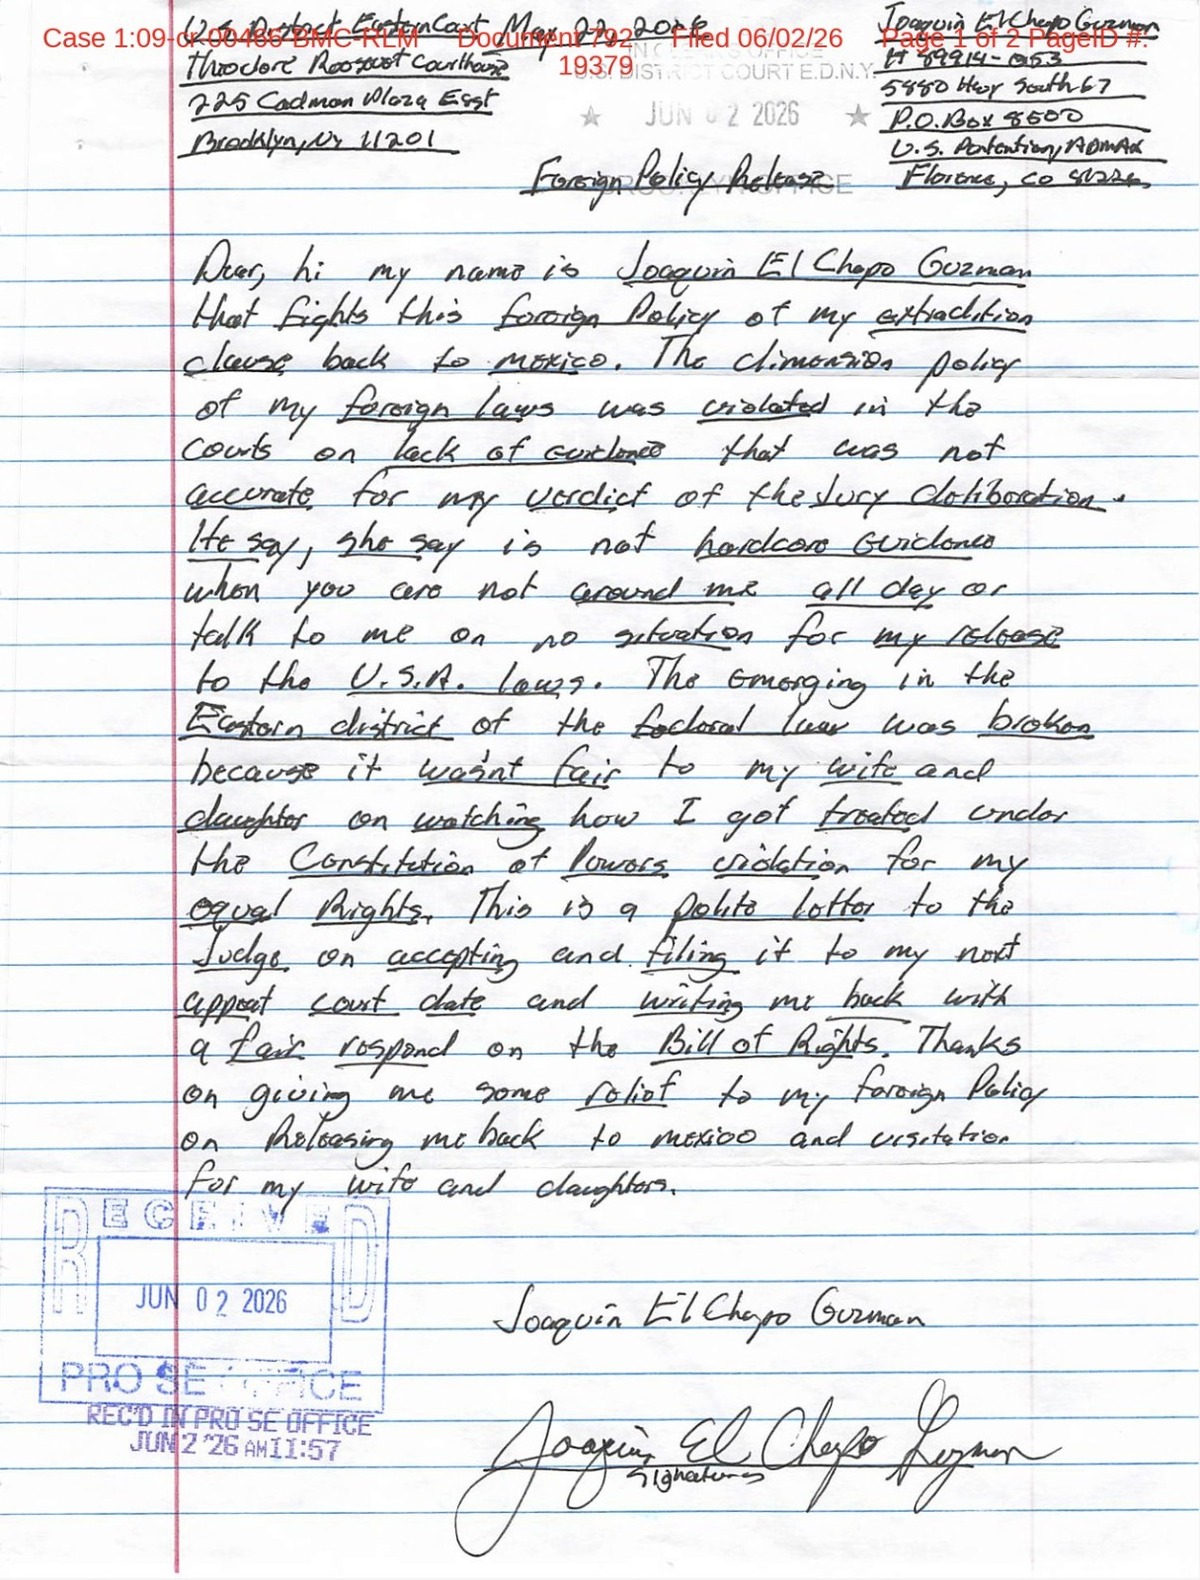 Case 1:09-cr-00466-BMC-RLM Document 792 Filed 06/02/26 Page 1 of 2 PageID #:
19379
U.S. District Eastern Court May 2026
Theodore Roosevelt Courthouse
225 Cadman Plaza East
Brooklyn, Ny 11201
Joaquin El Chapo Guzman
# 89914-053
5880 Hwy South 67
P.O. Box 8500
U.S. ADMAX
Florence, CO
IN CLERK'S OFFICE
U.S. DISTRICT COURT E.D.N.Y.
★ JUN 02 2026 ★
OFFICE
Foreign Policy Release
Dear, hi my name is Joaquin El Chapo Guzman
that fights this foreign Policy of my extradition
clause back to mexico. The dimension policy
of my foreign laws was violated in the
courts on lack of evidence that was not
accurate for my verdict of the Jury
He say, she say is not hardcore evidence
when you are not around me all day or
talk to me on no situation for my release
to the U.S.A. laws. The emerging in the
Eastern district of the federal law was broken
because it wasn't fair to my wife and
daughter on watching how I got treated under
the Constitution of Powers violation for my
equal Rights. This is a polite letter to the
Judge on accepting and filing it to my next
court date and writing me back with
a fair respond on the Bill of Rights. Thanks
on giving me some relief to my foreign Policy
on Releasing me back to mexico and visitation
for my wife and daughters.
RECEIVED
JUN 02 2026
PRO SE OFFICE
REC'D IN PRO SE OFFICE
JUN 2 '26 AM 11:57
Joaquin El Chapo Guzman
Joaquin El Chapo Guzman
signatures